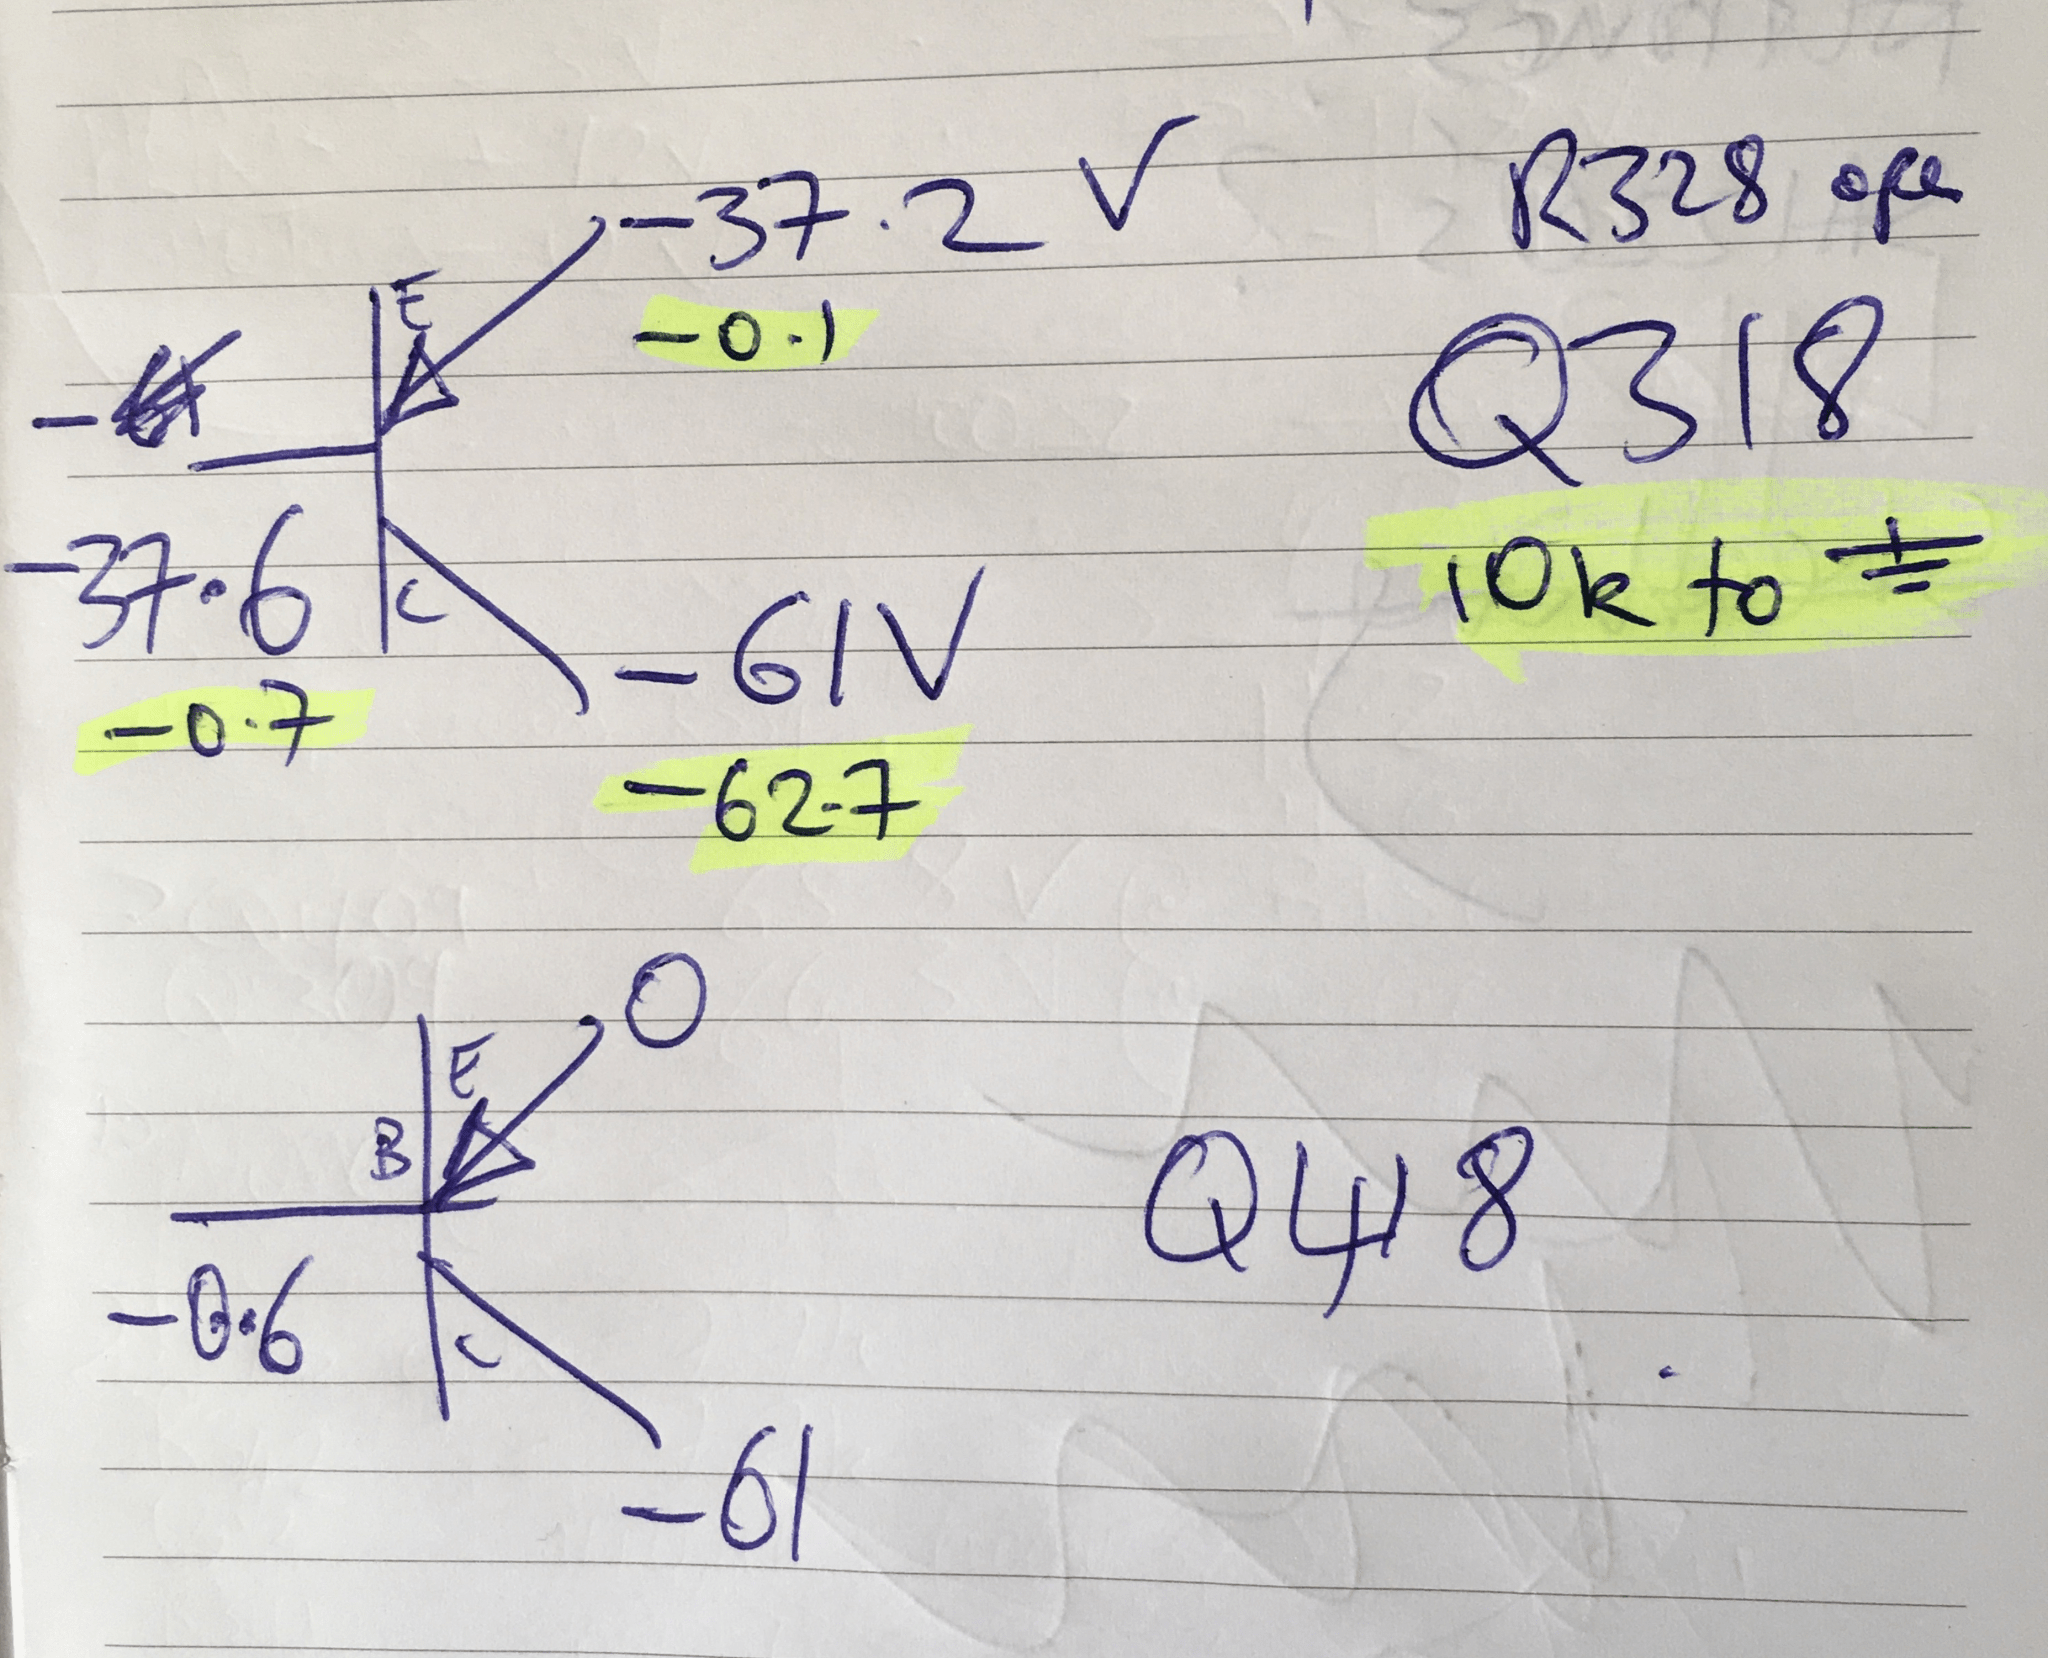 -37.2 V
R328 open
E
-0.1
Q318
-37.6
C
10k to
-61V
-0.7
-62.7
0
E
B
Q418
-0.6
C
-61